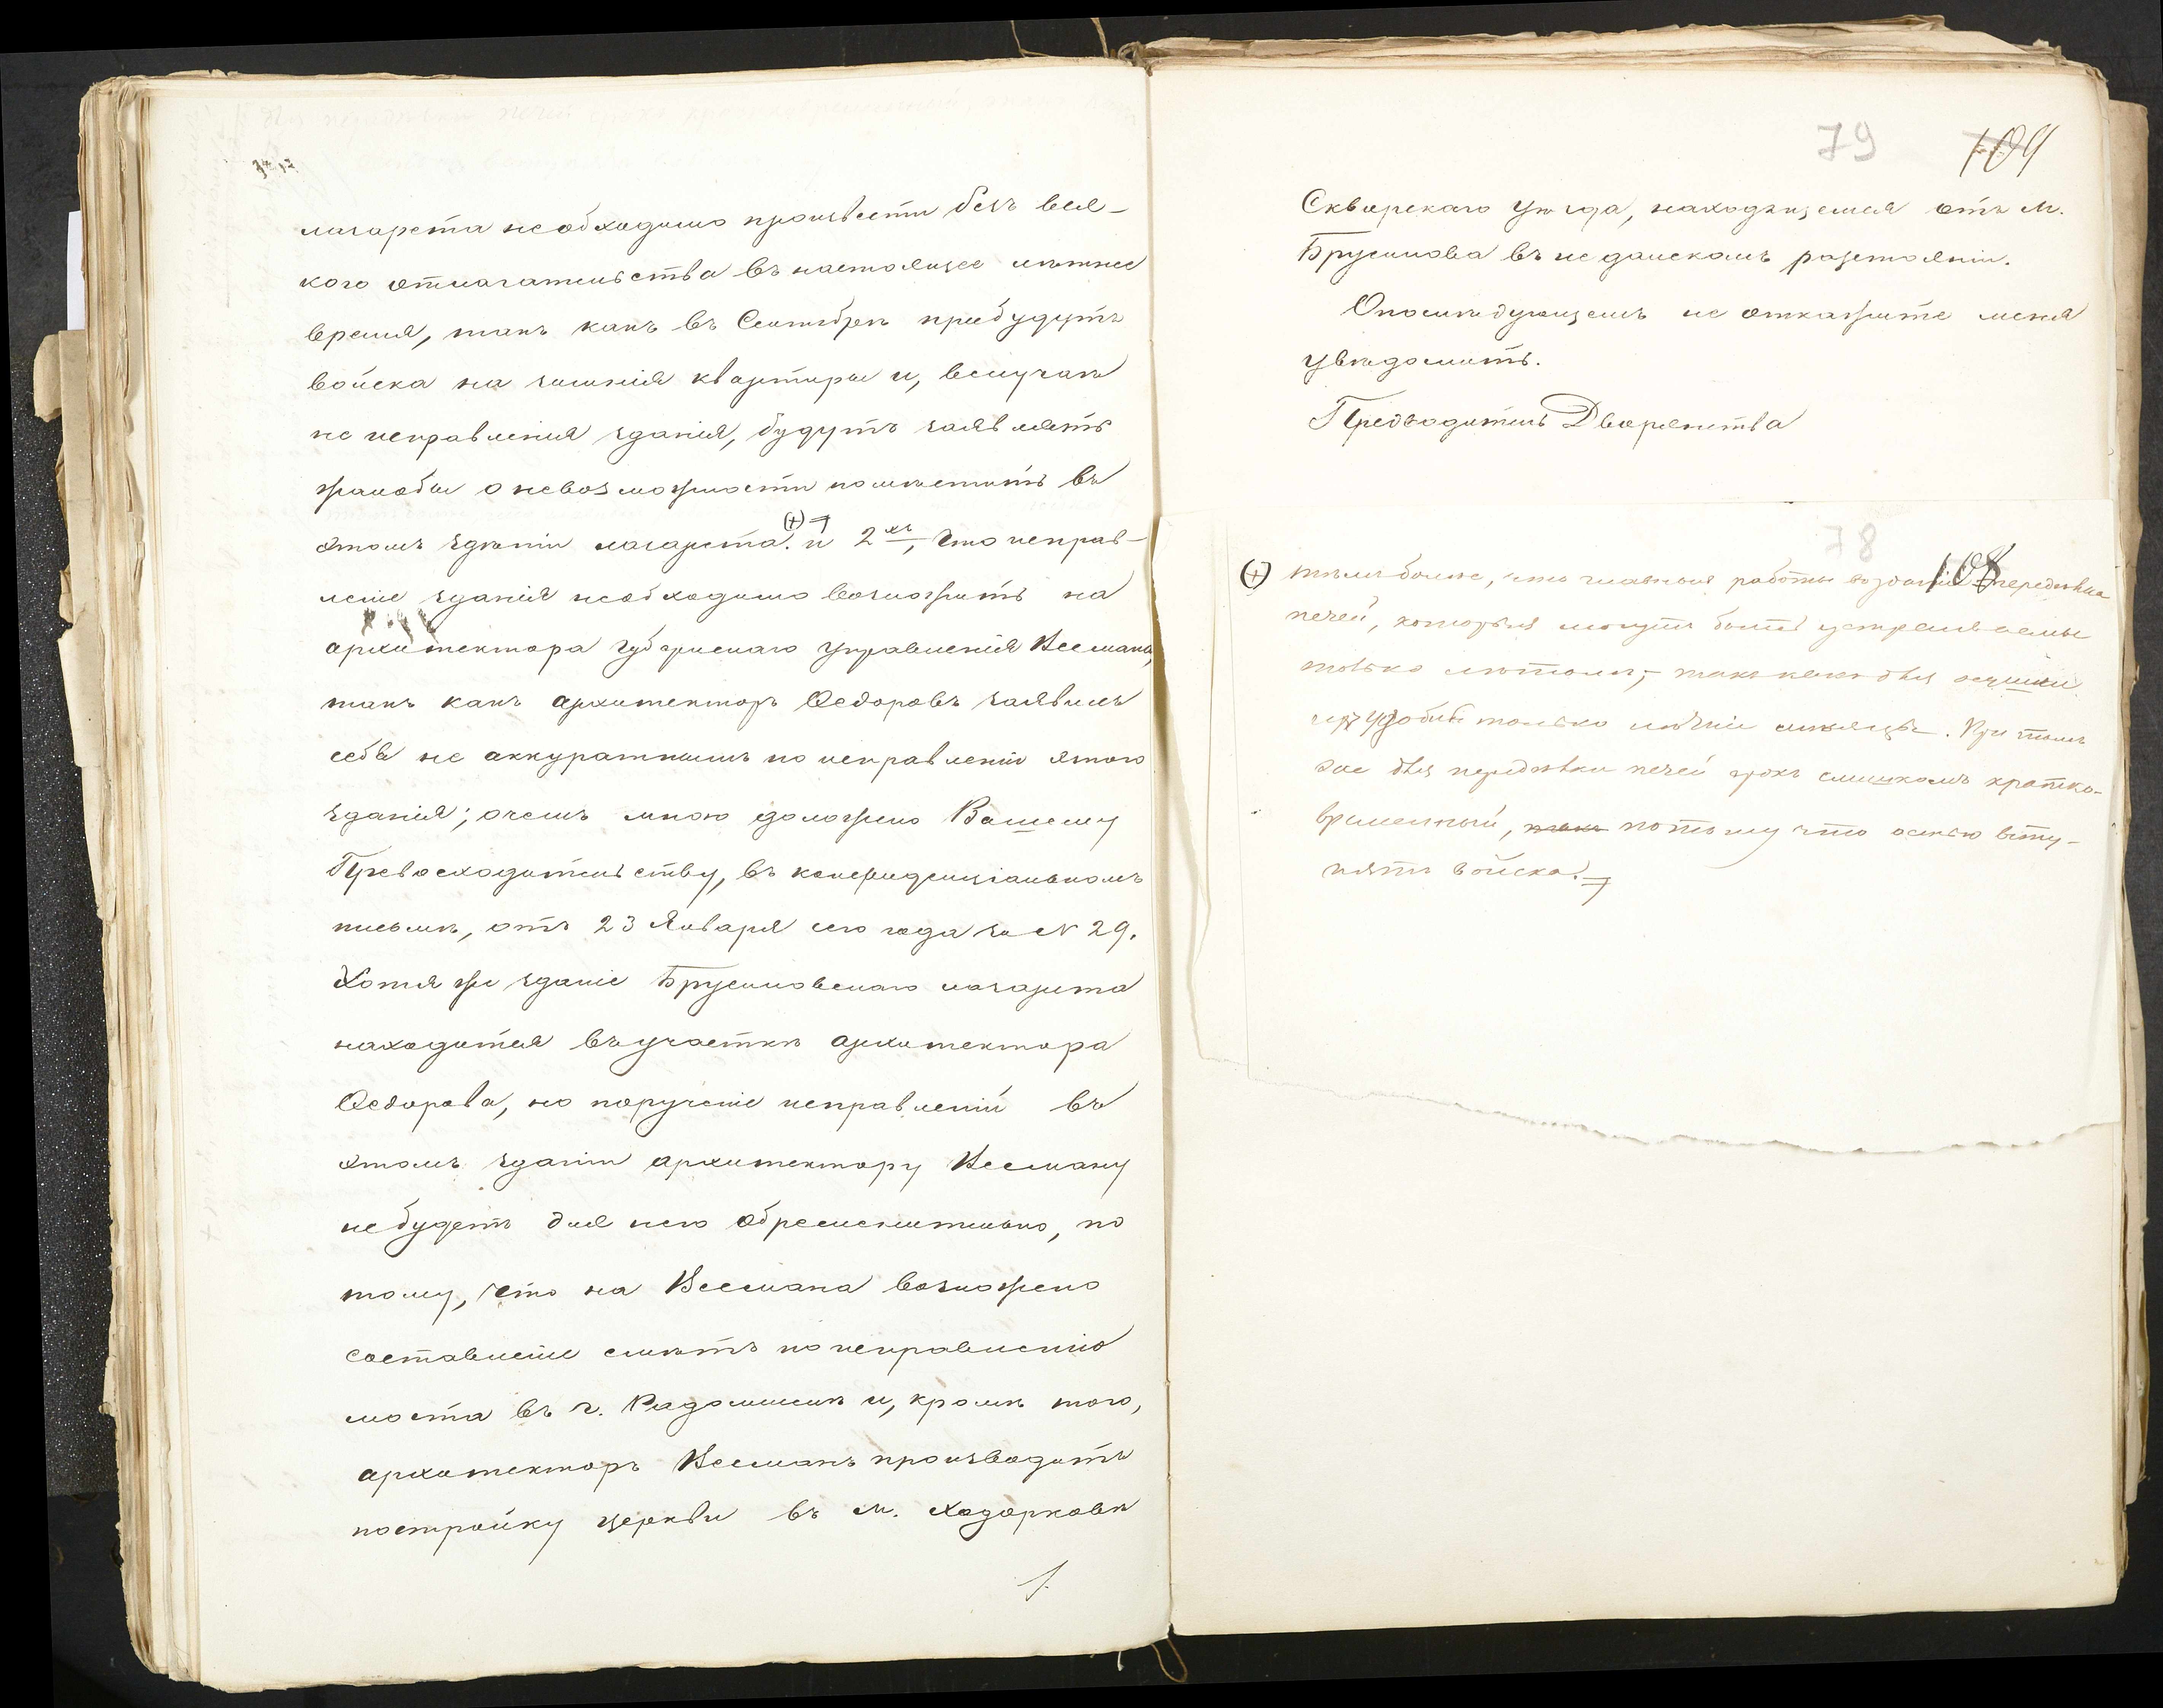 лазарета необходимо произвести безъ вся-
кого отлагательства въ настоящее лѣтнее
время, такъ какъ въ Сентябрѣ прибудутъ
войска на зимнія квартиры и, вслучаѣ
не исправленія зданія, будутъ заявлять
жалобы о невозможности помѣстить въ
этомъ зданіи лазарета. (+) и 2хъ, что исправ-
леніе зданія необходимо возложить на
архитектора Губернскаго управленія Несмана,
такъ какъ архитекторъ Ѳедоровъ заявилъ
себя не аккуратнымъ по исправленію этого
зданія; очемъ мною доложено Вашему
Превосходительству, въ конфиденціальномъ
письмѣ, отъ 23 Января сего года за N 29.
Хотя же зданіе Брусиловскаго лазарета
находится въ участкѣ архитектора
Ѳедорова, но порученіе исправленій въ
этомъ зданіи архитектору Несману
небудетъ для него обременительно, по
тому, что на Несмана возложено
составленіе смѣтъ по исправленію
моста въ г. Радомыслѣ и, кромѣ того,
архитекторъ Несманъ производитъ
постройку церкви въ м. Ходорковѣ
79 109
Сквирскаго уѣзда, находящемся отъ м.
Брусилова въ недалекомъ разстояніи.
Опослѣдующемъ не откажите меня
увѣдомить.
Предводитель Дворянства
78 108
(+) тѣмъ болѣе, что главныя работы зданія передѣлка
печей, которыя могутъ быть устраиваемы
только лѣтомъ, такъ какъ для осушки
удобны только лѣтніе мѣсяцы. При томъ
же для передѣлки печей срокъ слишкомъ кратко-
временный, потому что осенью всту-
пятъ войска.